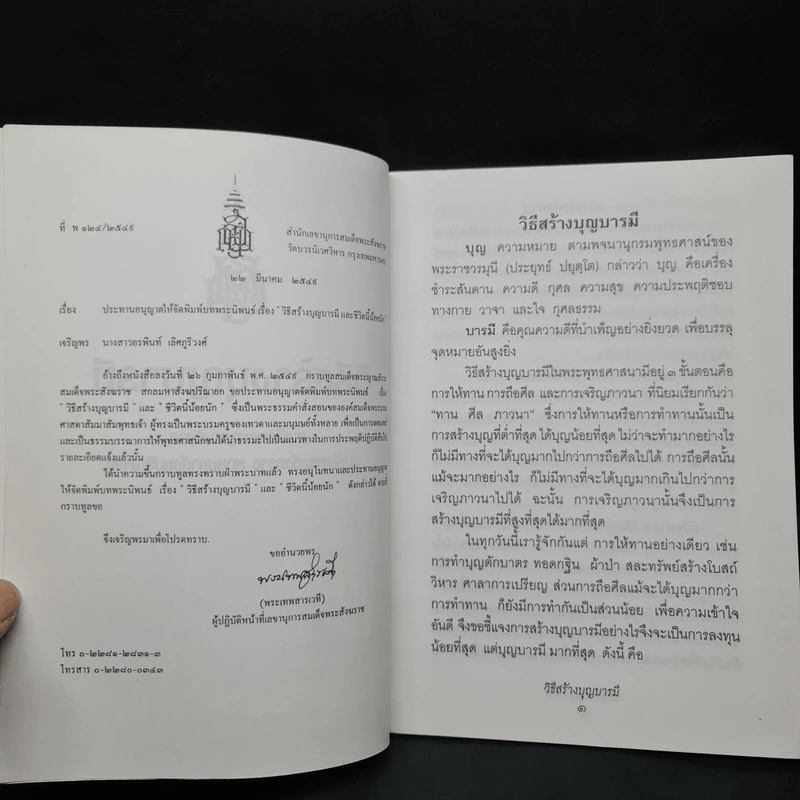 ที่ พ ๑๒๔/๒๕๔๙
สำนักเลขานุการสมเด็จพระสังฆราช
วัดบวรนิเวศวิหาร กรุงเทพมหานคร
๒๒ มีนาคม ๒๕๔๙
เรื่อง ประทานอนุญาตให้จัดพิมพ์บทพระนิพนธ์ เรื่อง " วิธีสร้างบุญบารมี และชีวิตนี้น้อยนัก "
เจริญพร นางสาวอรพินท์ เลิศภูรีวงศ์
อ้างถึงหนังสือลงวันที่ ๒๖ กุมภาพันธ์ พ.ศ. ๒๕๔๙ กราบทูลสมเด็จพระญาณสังวร
สมเด็จพระสังฆราช สกลมหาสังฆปริณายก ขอประทานอนุญาตจัดพิมพ์บทพระนิพนธ์ เรื่อง
" วิธีสร้างบุญบารมี " และ " ชีวิตนี้น้อยนัก " ซึ่งเป็นพระธรรมคำสั่งสอนขององค์สมเด็จพระบรม
ศาสดาสัมมาสัมพุทธเจ้า ผู้ทรงเป็นพระบรมครูของเทวดาและมนุษย์ทั้งหลาย เพื่อเป็นการเผยแผ่
และเป็นธรรมบรรณาการให้พุทธศาสนิกชนได้นำธรรมะไปเป็นแนวทางในการประพฤติปฏิบัติสืบไป
รายละเอียดแจ้งแล้วนั้น
ได้นำความขึ้นกราบทูลทรงทราบฝ่าพระบาทแล้ว ทรงอนุโมทนาและประทานอนุญาต
ให้จัดพิมพ์บทพระนิพนธ์ เรื่อง " วิธีสร้างบุญบารมี " และ " ชีวิตนี้น้อยนัก " ดังกล่าวได้ ตามที่
กราบทูลขอ
จึงเจริญพรมาเพื่อโปรดทราบ.
ขออำนวยพร
(พระเทพสารเวที)
ผู้ปฏิบัติหน้าที่เลขานุการสมเด็จพระสังฆราช
โทร ๐-๒๒๘๑-๒๘๓๑-๓
โทรสาร ๐-๒๒๘๐-๐๓๔๓
วิธีสร้างบุญบารมี
บุญ ความหมาย ตามพจนานุกรมพุทธศาสน์ของ
พระราชวรมุนี (ประยุทธ์ ปยุตฺโต) กล่าวว่า บุญ คือเครื่อง
ชำระสันดาน ความดี กุศล ความสุข ความประพฤติชอบ
ทางกาย วาจา และใจ กุศลธรรม
บารมี คือคุณความดีที่บำเพ็ญอย่างยิ่งยวด เพื่อบรรลุ
จุดหมายอันสูงยิ่ง
วิธีสร้างบุญบารมีในพระพุทธศาสนามีอยู่ ๓ ขั้นตอนคือ
การให้ทาน การถือศีล และการเจริญภาวนา ที่นิยมเรียกกันว่า
"ทาน ศีล ภาวนา" ซึ่งการให้ทานหรือการทำทานนั้นเป็น
การสร้างบุญที่ต่ำที่สุด ได้บุญน้อยที่สุด ไม่ว่าจะทำมากอย่างไร
ก็ไม่มีทางที่จะได้บุญมากไปกว่าการถือศีลไปได้ การถือศีลนั้น
แม้จะมากอย่างไร ก็ไม่มีทางที่จะได้บุญมากเกินไปกว่าการ
เจริญภาวนาไปได้ ฉะนั้น การเจริญภาวนานั้นจึงเป็นการ
สร้างบุญบารมีที่สูงที่สุดได้มากที่สุด
ในทุกวันนี้เรารู้จักกันแต่ การให้ทานอย่างเดียว เช่น
การทำบุญตักบาตร ทอดกฐิน ผ้าป่า สละทรัพย์สร้างโบสถ์
วิหาร ศาลาการเปรียญ ส่วนการถือศีลแม้จะได้บุญมากกว่า
การทำทาน ก็ยังมีการทำกันเป็นส่วนน้อย เพื่อความเข้าใจ
อันดี จึงขอชี้แจงการสร้างบุญบารมีอย่างไรจึงจะเป็นการลงทุน
น้อยที่สุด แต่บุญบารมี มากที่สุด ดังนี้ คือ
วิธีสร้างบุญบารมี
๑